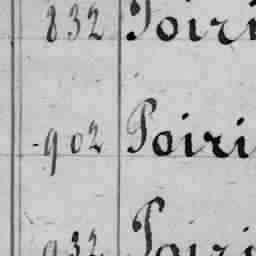 832 Poiri
902 Poiri
932 Poiri